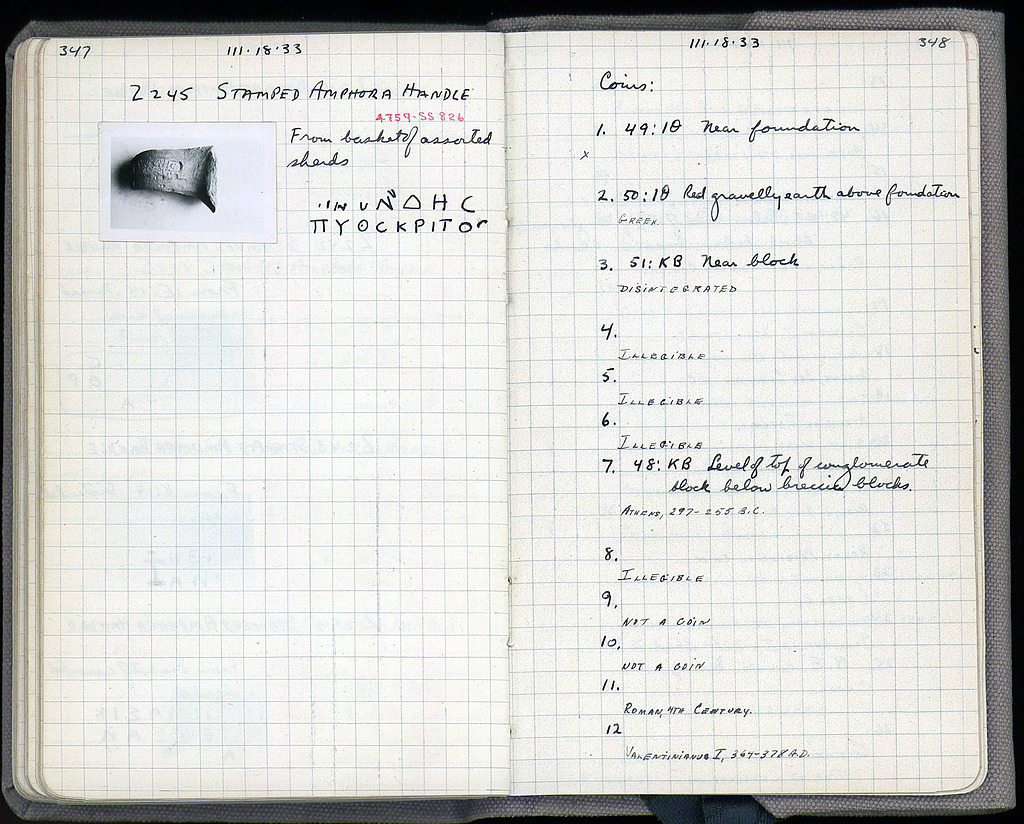 347
III·18·33
Z 245 STAMPED AMPHORA HANDLE
A759-SS 826
From basket of assorted
sherds
ΠΥΟCΚΡΙΤΟ
III·18·33
348
Coins:
1. 49:ΙΘ Near foundation
x
2. 50:ΙΘ Red gravelly earth above foundation
GREEK.
3. 51:KB Near block
DISINTEGRATED
4.
ILLEGIBLE
5.
ILLEGIBLE
6.
ILLEGIBLE
7. 48:KB Level of top of conglomerate
block below breccia blocks.
ATHENS, 297-255 B.C.
8.
ILLEGIBLE
9.
NOT A COIN
10.
NOT A COIN
11.
ROMAN, 4TH CENTURY.
12
VALENTINIANUS I, 364-378 A.D.